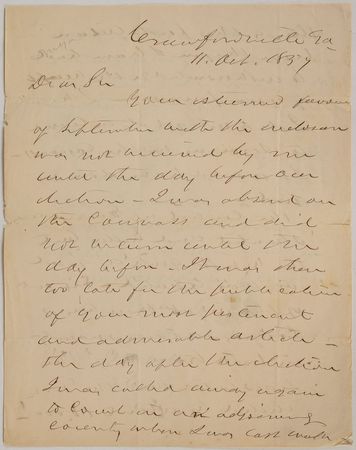 Crawfordville Ga
11. Oct. 1857
Dear Sir
Your esteemed favour
of September with the enclosure
was not received by me
until the day before our
election - I was absent on
the Canvass and did
not return until the
day before. It was then
too late for the publication
of your most pertinent
and admirable article -
the day after the election
I was called away again
to Court in an adjoining
County when I was last week